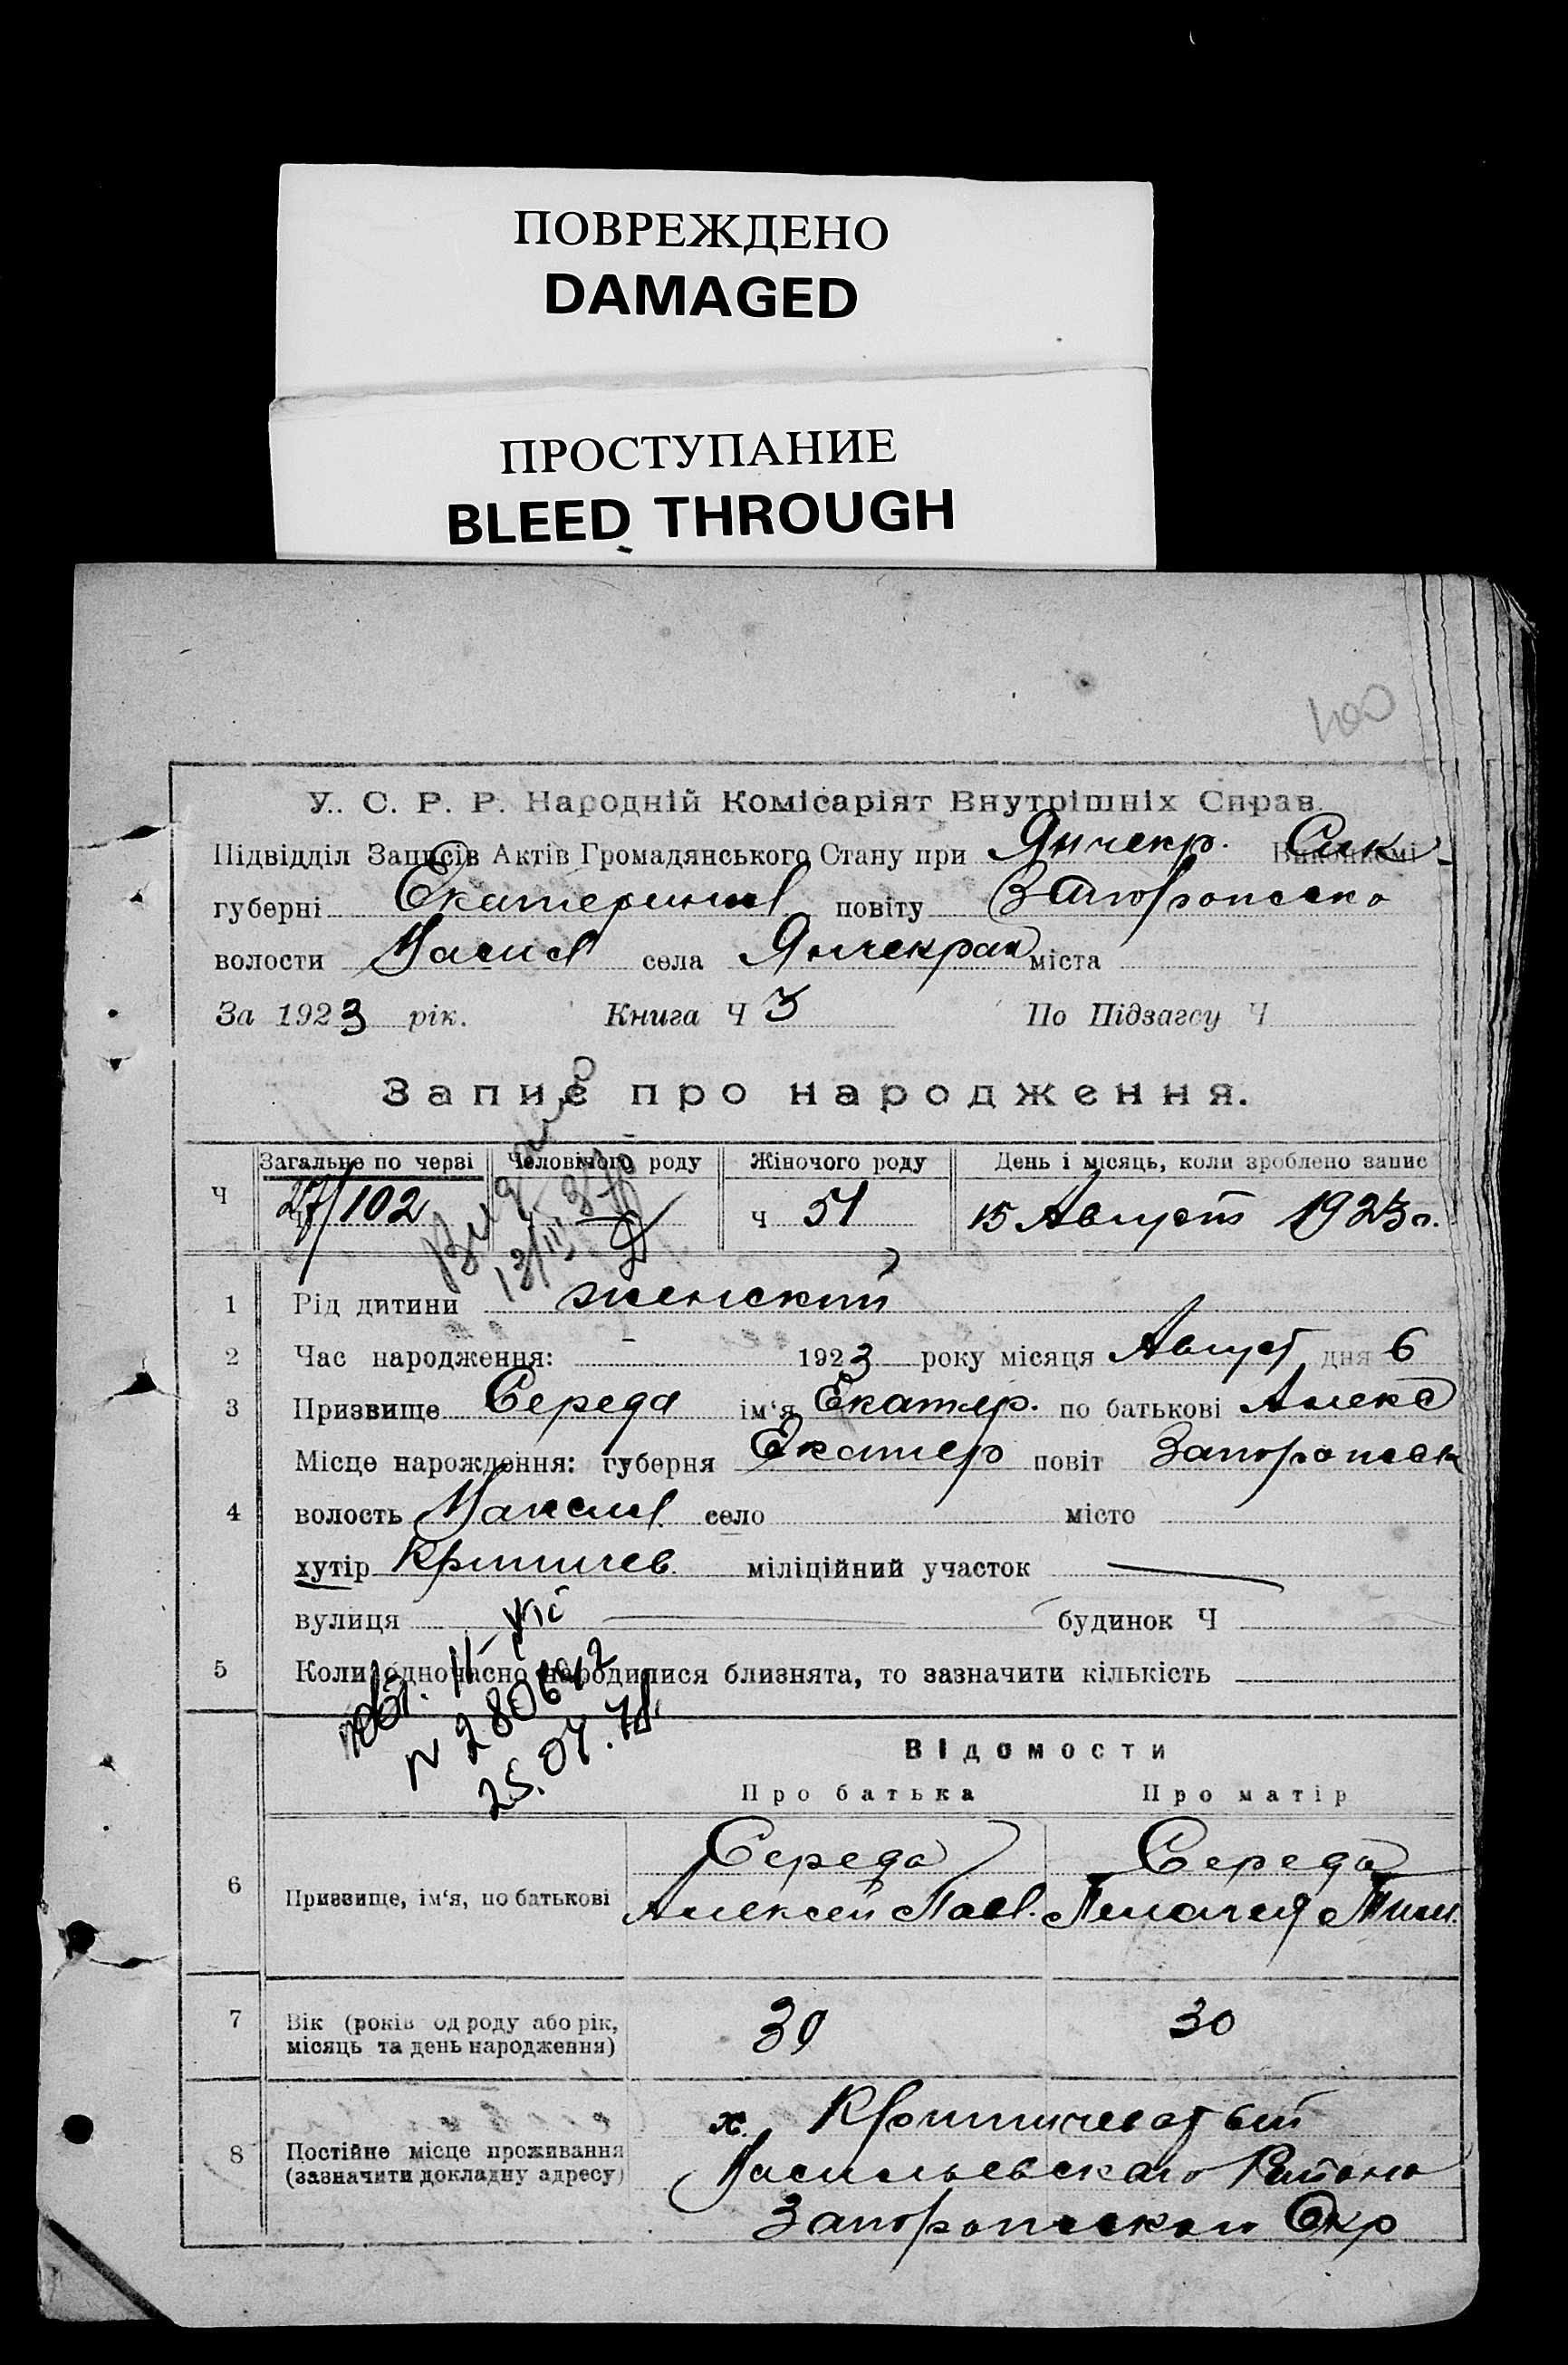 ПОВРЕЖДЕНО
DAMAGED
ПРОСТУПАНИЕ
BLEED THROUGH
У. С. Р. Р. Народній Комісаріят Внутрішніх Справ
Підвідділ Записів Актів Громадянського Стану при Янчекр. Виконкомі
губерні Екатеринил повіту Запорожско
волости Васил села Янчекрак міста
За 1923 рік. Книга Ч 3 По Підзагсу Ч
Запис про народження.
Загальне по черзі Человічого роду Жіночого роду День і місяць, коли зроблено запис
Ч 27/102 ч 51 15 Август 1923 г.
1 Рід дитини женский
2 Час народження: 1923 року місяця Август дня 6
3 Призвище Середа ім'я Екатер. по батькові Алекс
Місце нарождення: губерня Екатер повіт Запорожск
4 волость Васил село місто
хутір міліційний участок
вулиця будинок Ч
5 Коли одночасно народилися близнята, то зазначити кількість
N 280642
25.07.
Відомости
Про батька Про матір
Середа Середа
6 Призвище, ім'я, по батькові Алексей Павл. Пелагея Тим.
7 Вік (років од роду або рік, місяць та день народження) 30
8 Постійне місце проживання (зазначити докладну адресу)
х.
Васильевскаго Района
Запорожской Окр